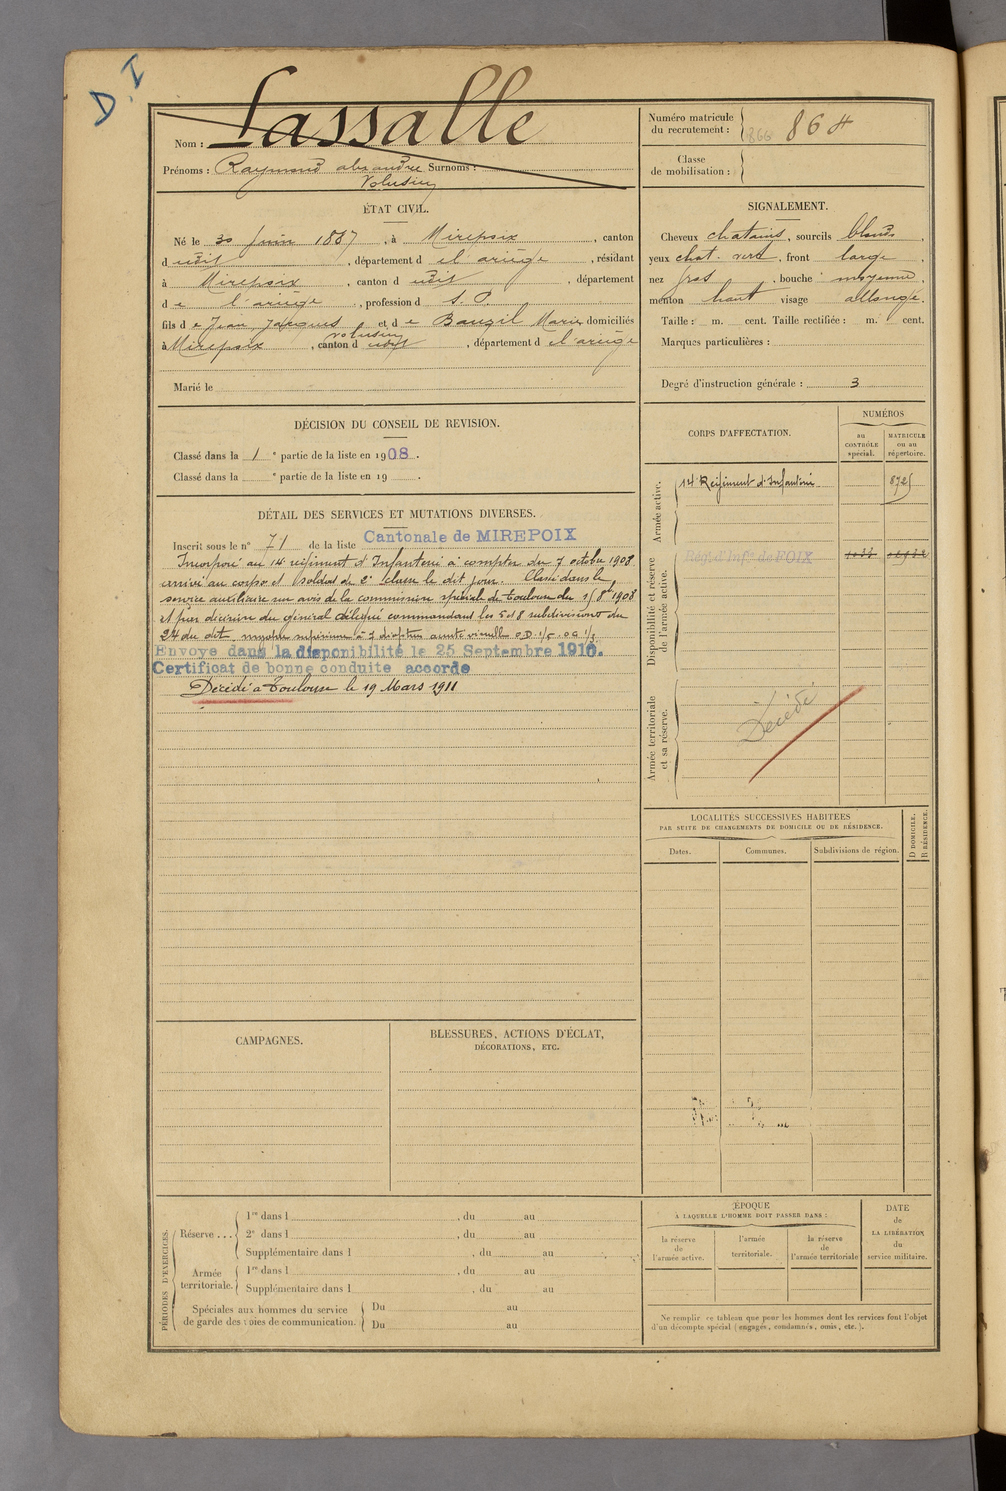 D.I
Nom : Lassalle
Prénoms : Raymond alexandre Surnoms :
Volusien
Numéro matricule
du recrutement : 866 864
Classe
de mobilisation :
ÉTAT CIVIL.
Né le 30 Juin 1887, à Mirepoix, canton
d udit, département d e l'ariège, résidant
à Mirepoix, canton d udit, département
d e l'ariège, profession d S. P.
fils d e Jean Jacques et d e Bauzil Marie domiciliés
Volusien
à Mirepoix, canton d udit, département d e l'ariège
Marié le
SIGNALEMENT.
Cheveux chatains, sourcils blonds,
yeux chat. vert, front large,
nez gros, bouche moyenne,
menton haut visage allongé.
Taille : m. cent. Taille rectifiée : m. cent.
Marques particulières :
Degré d'instruction générale : 3
DÉCISION DU CONSEIL DE REVISION.
Classé dans la 1 e partie de la liste en 1908.
Classé dans la e partie de la liste en 19 .
DÉTAIL DES SERVICES ET MUTATIONS DIVERSES.
Inscrit sous le n° 71 de la liste Cantonale de MIREPOIX
Incorporé au 14e régiment d'Infanterie à compter du 7 octobre 1908
arrivé au corps et soldat de 2e classe le dit jour. Classé dans le
service auxiliaire sur avis de la commission spéciale de Toulouse du 15 8bre 1908
et par décision du général délégué commandant les 5 et 8 subdivisions du
24 du dit myopie supérieure à 7 dioptries acuité visuelle O.D. 1/5 . O G 1/5
Envoyé dans la disponibilité le 25 Septembre 1910.
Certificat de bonne conduite accordé
Décédé à Toulouse le 19 Mars 1911
CORPS D'AFFECTATION.
NUMÉROS
au
CONTRÔLE
spécial.
MATRICULE
ou au
répertoire.
Armée active.
14e Régiment d'Infanterie
8725
Disponibilité et réserve
de l'armée active.
Régt d'Infie de FOIX
Armée territoriale
et sa réserve.
Décédé
LOCALITÉS SUCCESSIVES HABITÉES
PAR SUITE DE CHANGEMENTS DE DOMICILE OU DE RÉSIDENCE.
Dates.
Communes.
Subdivisions de région.
D DOMICILE.
R RÉSIDENCE.
CAMPAGNES.
BLESSURES, ACTIONS D'ÉCLAT,
DÉCORATIONS, ETC.
PÉRIODES D'EXERCICES.
Réserve ...
1re dans l , du au
2e dans l , du au
Supplémentaire dans l , du au
Armée
territoriale.
1re dans l , du au
Supplémentaire dans l , du au
Spéciales aux hommes du service
de garde des voies de communication.
Du au
Du au
ÉPOQUE
À LAQUELLE L'HOMME DOIT PASSER DANS :
la réserve
de
l'armée active.
l'armée
territoriale.
la réserve
de
l'armée territoriale
DATE
de
LA LIBÉRATION
du
service militaire.
Ne remplir ce tableau que pour les hommes dont les services font l'objet
d'un décompte spécial (engagés, condamnés, omis, etc.).